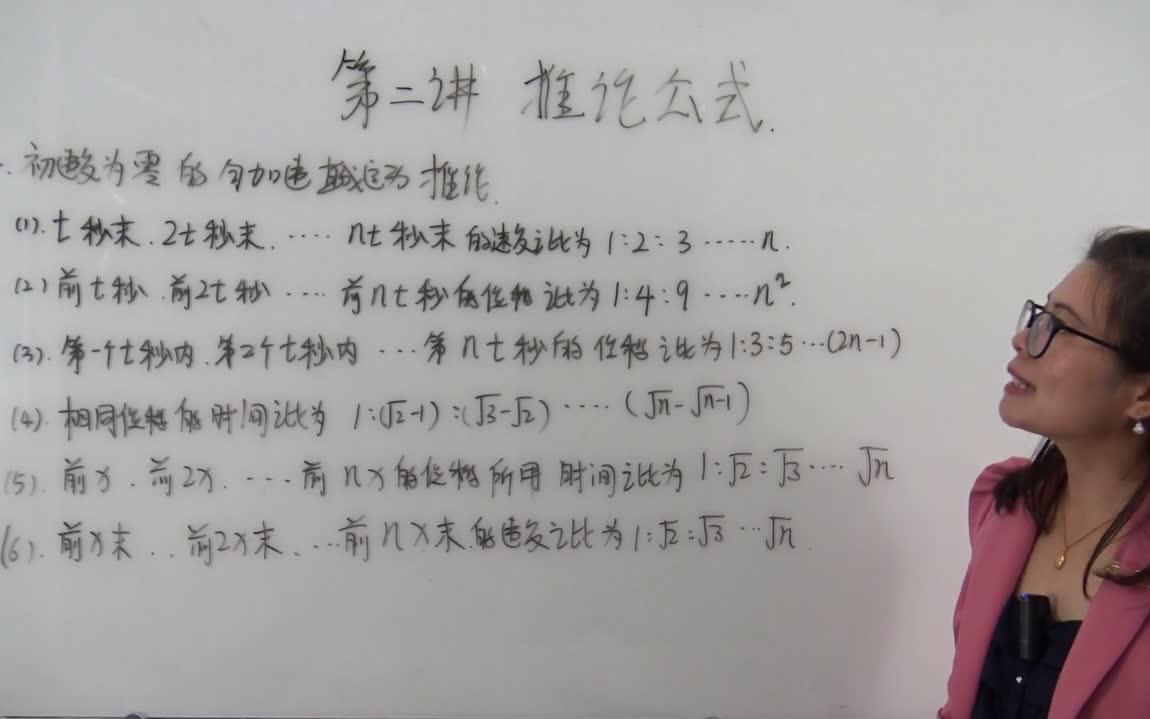 第二讲 推论公式.
初速度为零的匀加速直线运动推论.
(1). t秒末.2t秒末.…… nt秒末的速度之比为 1:2:3……n.
(2) 前t秒.前2t秒…… 前nt秒的位移之比为 1:4:9……n².
(3). 第一个t秒内.第2个t秒内…第nt秒的位移之比为 1:3:5…(2n-1)
(4). 相同位移的时间之比为 1:(√2-1):(√3-√2)……(√n-√n-1)
(5). 前x.前2x.…前nx的位移所用时间之比为 1:√2:√3…√n
(6). 前x末..前2x末.…前nx末.的速度之比为 1:√2:√3…√n.